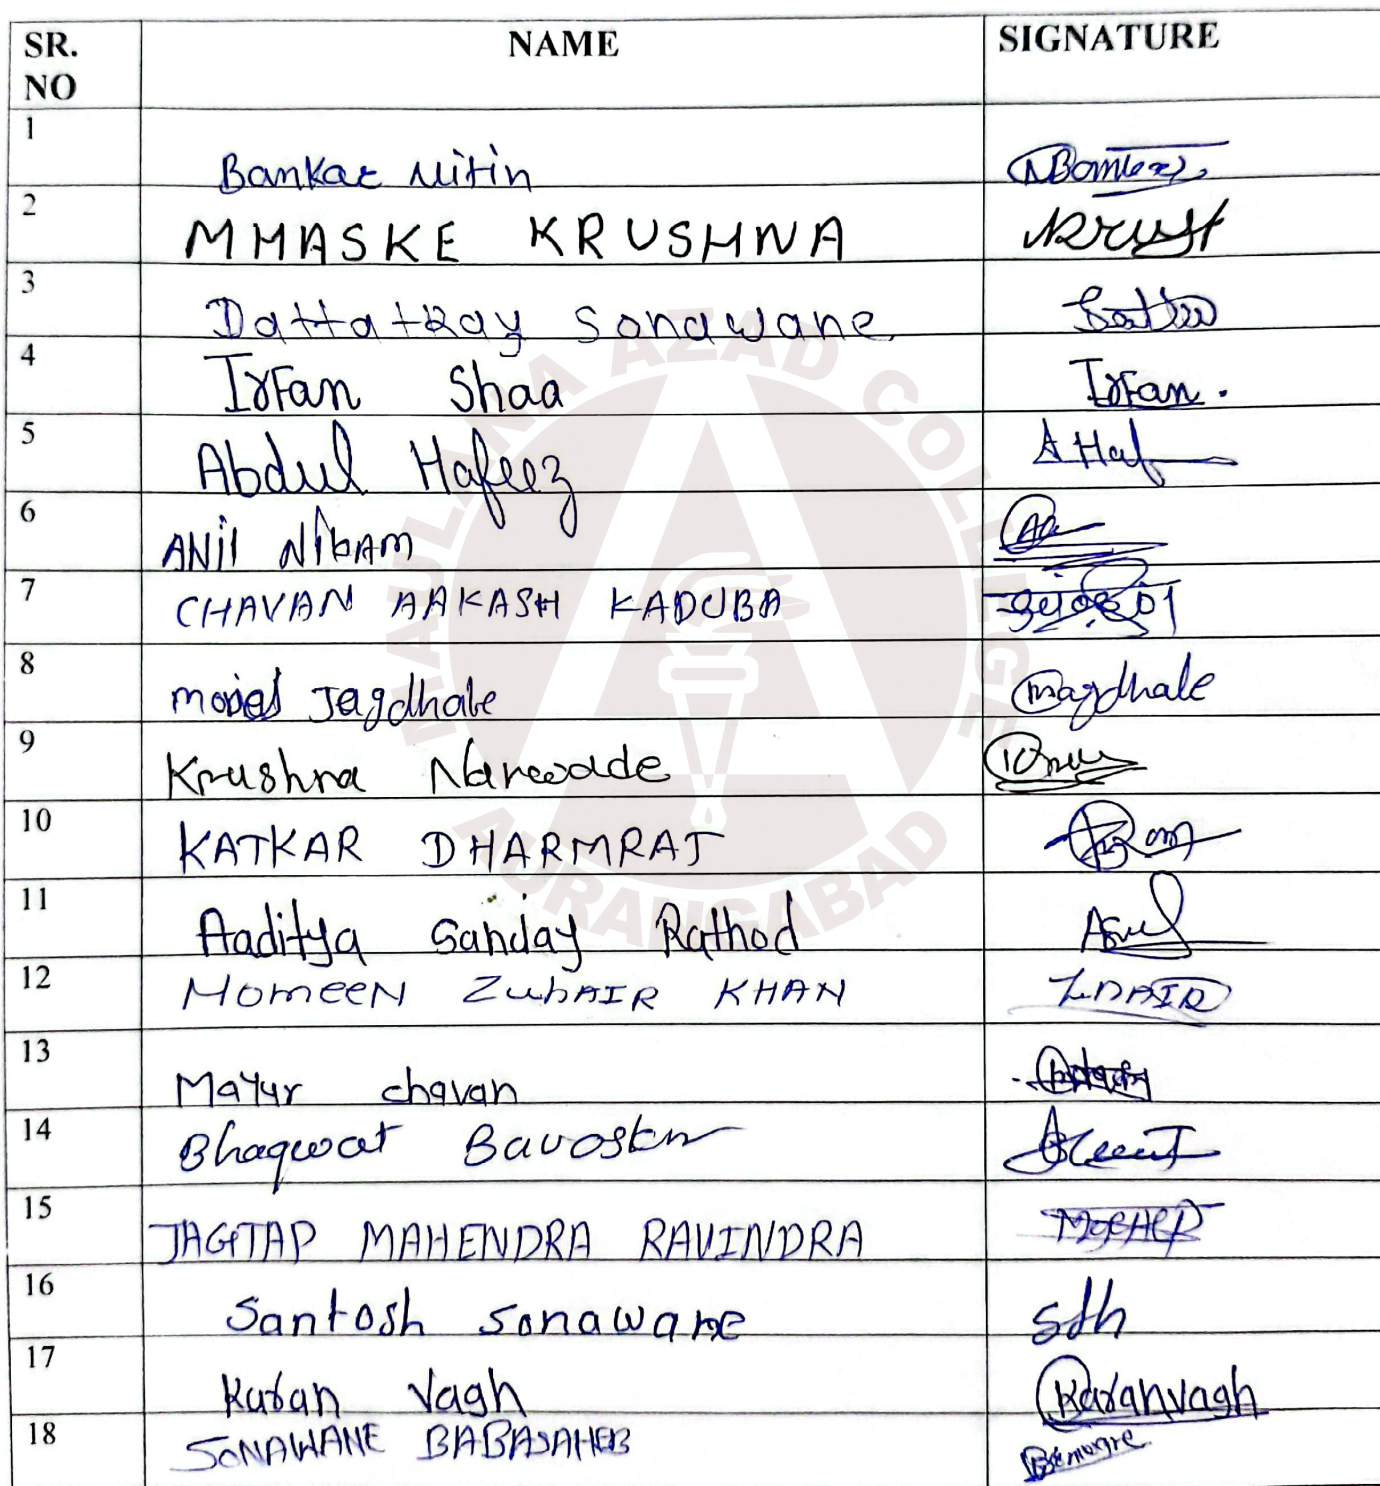 SR. NO NAME SIGNATURE
1 Bankar Nitin
2 MHASKE KRUSHNA Krush
3 Dattatray Sonawane
4 Irfan Shaa Irfan.
5 Abdul Hafeez A Haf
6 ANil NikAM
7 CHAVAN AAKASH KADUBA
8 Jagdhale magdhale
9 Krushna Narwade
10 KATKAR DHARMRAJ
11 Aaditya Sanjay Rathod
12 MomeeN ZuhAIR KHAN
13 Mayur chavan
14 Bhagwat Bavoskar
15 JAGTAP MAHENDRA RAVINDRA
16 Santosh sonawane
17 Karan Vagh Karanvagh
18 SONAWANE BABASAHEB
MAULANA AZAD COLLEGE
AURANGABAD